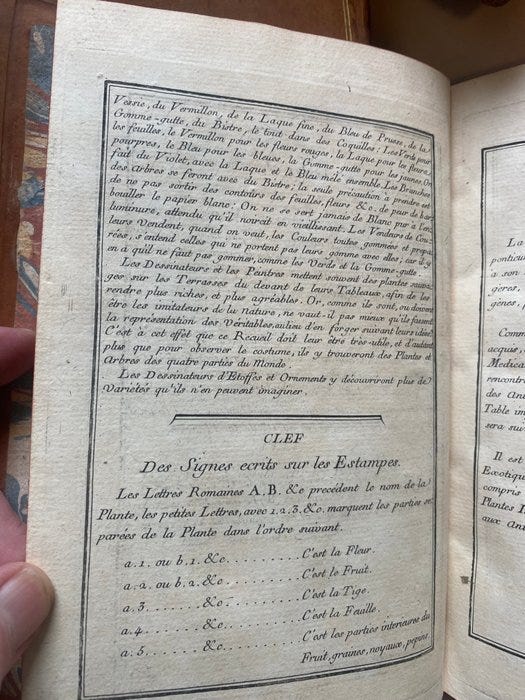 Vessie, du Vermillon, de la Laque fine, du Bleu de Prusse, de la
Gomme-gutte, du Bistre, le tout dans des Coquilles: Les Verds pour
les feuilles, le Vermillon pour les fleurs rouges, la Laque pour les fleurs
pourpres, le Bleu pour les bleues, la Gomme-gutte pour les jaunes. On
fait du Violet, avec la Laque et le Bleu mêlé ensemble. Les Branches
des Arbres se feront avec du Bistre; la seule précaution à prendre est
de ne pas sortir des contours des feuilles, fleurs &c. de peur de bar
bouiller le papier blanc: On ne se sert jamais de Blanc pur à l'en
luminure, attendu qu'il noircit en vieillissant. Les Vendeurs de Cou
leurs Vendent, quand on veut, les Couleurs toutes gommées et prépa
rées, s'entend celles qui ne portent pas leurs gomme avec elles; car il y
en à qu'il ne faut pas gommer, comme les Verds et la Gomme-gutte.
Les Dessinateurs et les Peintres mettent souvent des plantes sauva
ges sur les Terrasses du devant de leurs Tableaux, afin de les
rendre plus riches, et plus agréables. Or, comme ils sont, ou doivent
être les imitateurs de la nature, ne vaut-il pas mieux qu'ils fassent
la représentation des Veritables, aulieu d'en forger suivant leurs idées?
C'est à cet effet que ce Recueil doit leur être très-utile, et d'autant
plus que pour observer le costume, ils y trouveront des Plantes et
Arbres des quatre parties du Monde.
Les Dessinateurs d'Etoffes et Ornements y découvriront plus de
Variétés qu'ils n'en peuvent imaginer.
CLEF
Des Signes ecrits sur les Estampes.
Les Lettres Romaines A.B. &c precédent le nom de la
Plante, les petites Lettres, avec 1.2.3.&c. marquent les parties se
parées de la Plante dans l'ordre suivant.
a.1. ou b.1. &c. . . . . . . . . C'est la Fleur.
a.2. ou b.2. &c. . . . . . . . . C'est le Fruit.
a.3. . . . . . . &c. . . . . . . . . C'est la Tige.
a.4. . . . . . . &c. . . . . . . . . C'est la Feuille.
a.5. . . . . . . &c. . . . . . . . . C'est les parties interieures du
Fruit, graines, noyaux, pepins.
La
ponticu
à son
gères,
gènes,
Comm
acquis,
Medical
rencont
des An
Table im
sera sui
Il est
Exotique
compris
Plantes I
aux Ant